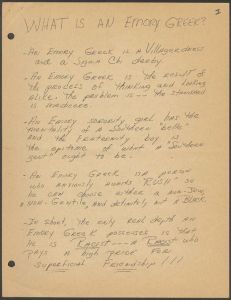 I
WHAT IS AN EMORY GREEK?
- An Emory Greek is a Villager dress
and a Sigma Chi derby.
- An Emory Greek is the result of
the process of thinking and looking
alike. The problem is -- the standard
is mediocre.
- An Emory sorority girl has the
mentality of a Southern "belle"
and the fraternity boy is
the epitome of what a "Southern
gent" ought to be.
- An Emory Greek is a person
who anxiously awaits "RUSH" so
he can choose either a non-Jew,
a non-Gentile, and definitely not a BLACK.
- In short, the only real depth an
Emory Greek possesses is that
he is RACIST --- A RACIST who
pays a high price for
superficial friendship!!!!